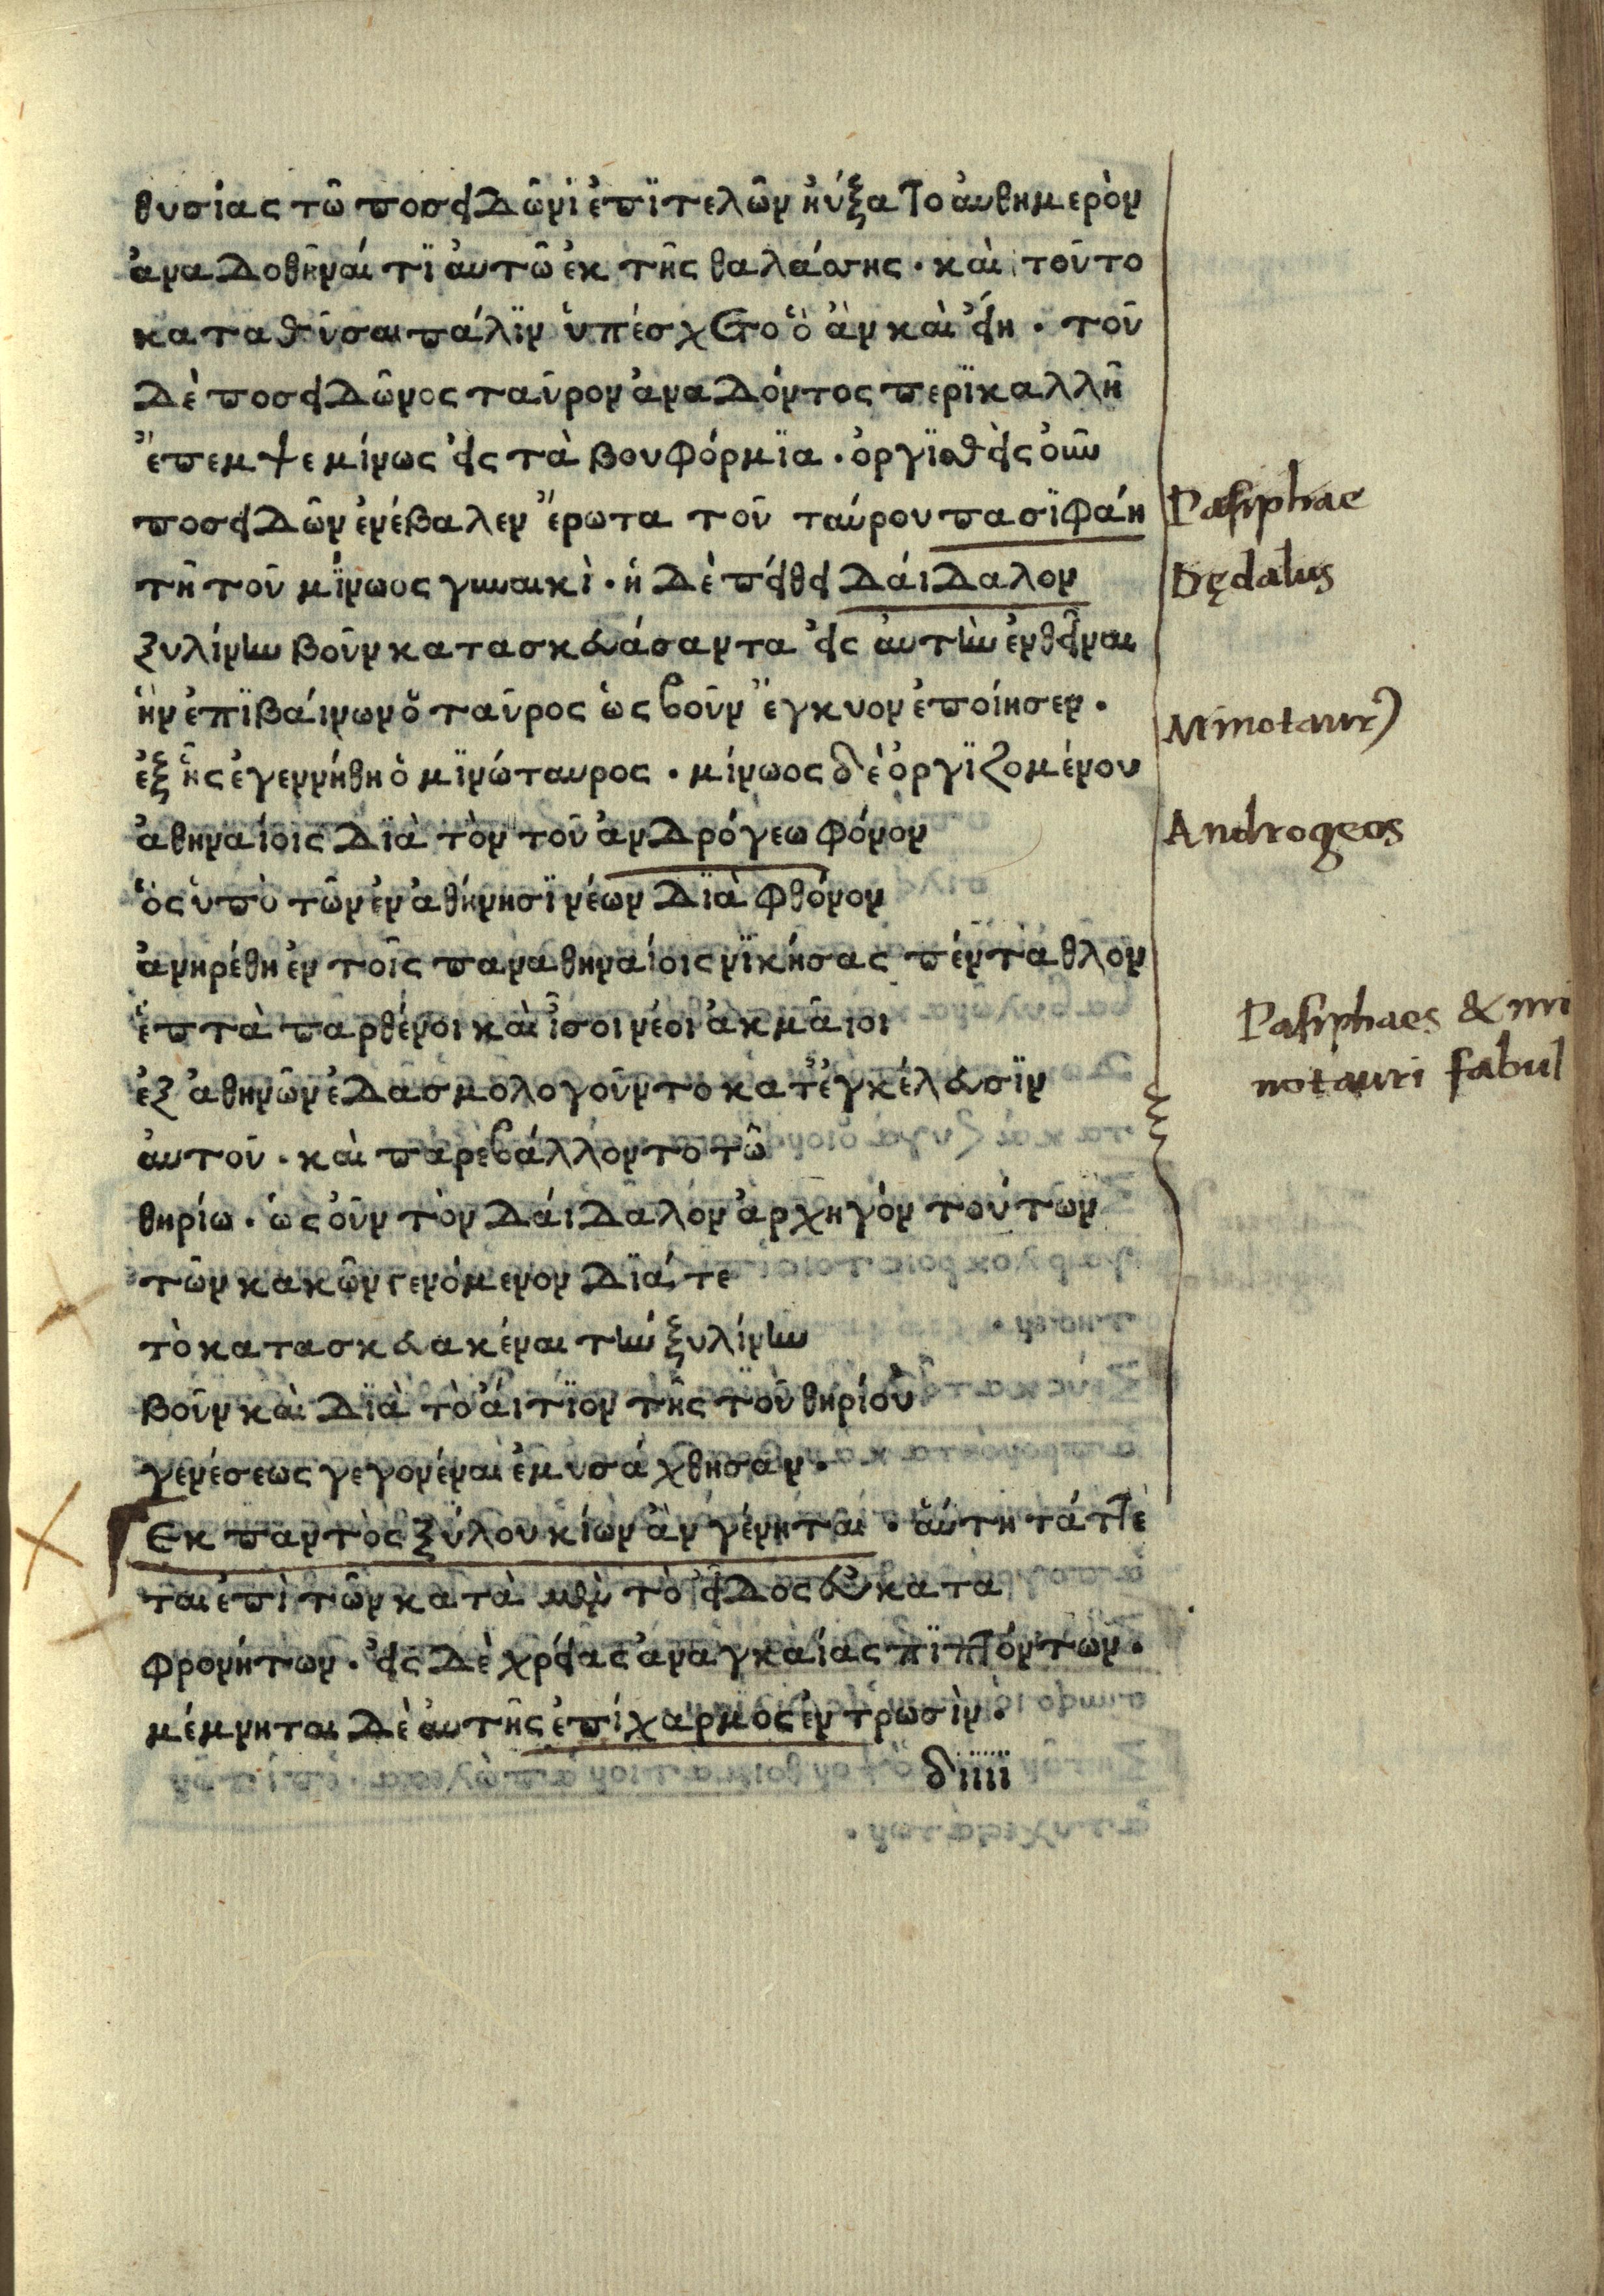 θυσίας τῶ ποσειδῶνϊ ἐπϊτελῶν ἠύξατο ἀυθημερὸν
ἀναδοθῆναί τϊ ἀυτῶ ἐκ τῆς θαλάσσης . καὶ τοῦτο
καταθῦσαι πάλϊν ὑπέσχετο ὃ ἂν καὶ ἔιη . τοῦ
δὲ ποσειδῶνος ταῦρον ἀναδόντος περϊκαλλῆ
ἔπεμψε μίνως ἐις τὰ βουφόρμϊα . ὀργϊσθεὶς οὖν
ποσειδῶν ἐνέβαλεν ἔρωτα τοῦ ταύρου πασϊφάη
τῆ τοῦ μΐνωος γυναικὶ . ἡ δὲ πείθει δάιδαλον
ξυλίνην βοῦν κατασκευάσαντα ἐις ἀυτὴν ἐνθεῖναι
ἣν ἐπϊβάινων ὁ ταῦρος ὡς βοῦν ἔγκυον ἐποίησεν .
ἐξ ἧς ἐγεννήθη ὁ μϊνώταυρος . μίνωος δὲ ὀργϊζομένου
ἀθηναίοις δϊὰ τὸν τοῦ ἀνδρόγεω φόνον
ὃς ὑπὸ τῶν ἐν ἀθήνησϊ νέων δϊὰ φθόνον
ἀνηρέθη ἐν τοῖς παναθηναίοις νϊκήσας πένταθλον
ἑπτὰ παρθένοι καὶ ἶσοι νέοι ἀκμᾶιοι
ἐξ ἀθηνῶν ἐδασμολογοῦντο κατ' ἐγκέλευσϊν
ἀυτοῦ . καὶ παρεβάλλοντο τῶ
θηρίω . ὡς οὖν τὸν δάιδαλον ἀρχηγὸν τούτων
τῶν κακῶν γενόμενον δϊά τε
τὸ κατασκευακέναι τὴν ξυλίνην
βοῦν καὶ δϊὰ τὸ ἄιτϊον τῆς τοῦ θηρίου
γενέσεως γεγονέναι ἐμυσάχθησαν .
Εκ παντὸς ξύλου κίων ἂν γένηται . ἅυτη τάττε
ται ἐπὶ τῶν κατὰ μὲν τὸ εἶδος ευκατα
φρονήτων . ἐις δὲ χρείας ἀναγκαίας πϊπτόντων .
μέμνηται δὲ ἀυτῆς ἐπίχαρμος ἐν τρωσὶν .
δiiii
Pasiphae
Dędalus
Minotaur)
Androgeos
Pasiphaes & mi
notauri fabul